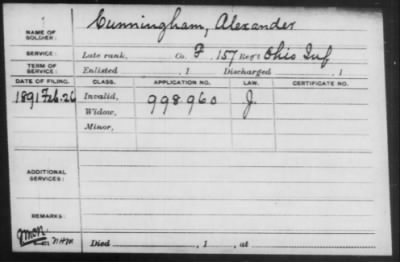 NAME OF SOLDIER: Cunningham, Alexander
SERVICE: Late rank, Co. F. 157 Reg't Ohio Inf
TERM OF SERVICE: Enlisted , 1 Discharged , 1
DATE OF FILING. CLASS. APPLICATION NO. LAW. CERTIFICATE NO.
1891 Feb. 26 Invalid, 998960 J.
Widow,
Minor,
ADDITIONAL SERVICES:
REMARKS:
Died , 1 , at